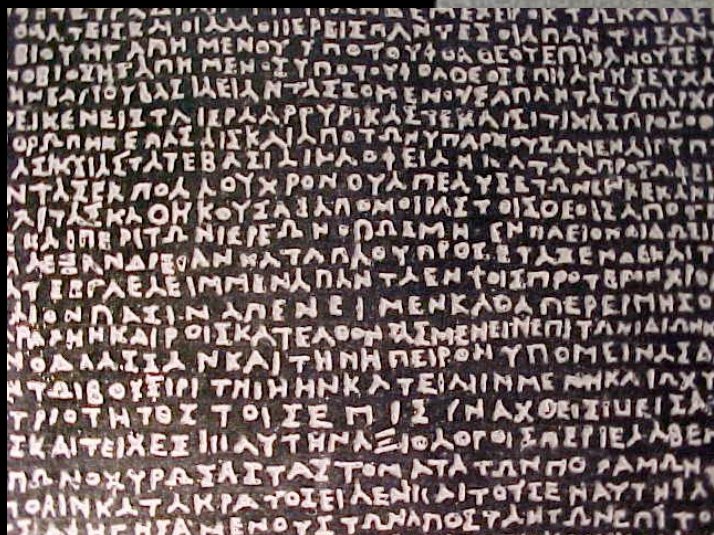 ΙΕΡΕΙΣΠΑΝΤΕΣΟΙΑΠΑΝΤΗΣΑΝ
ΒΙΟΥΗΓΑΠΗΜΕΝΟΥΥΠΟΤΟΥΦΘΑΘΕΟΥΕΠΙΦΑΝΟΥΣΕΥ
ΝΟΒΙΟΣΗΓΑΠΗΜΕΝΟΣΥΠΟΤΟΥΦΘΑΘΕΟΣΕΠΙΦΑΝΗΣΕΥΧΑ
ΒΑΣΙΛΕΙΑΝΤΑΣΣΟΜΕΝΟΥΣΑΠΑΝΤΑΣΥΠΑΡΧ
ΕΙΚΕΝΕΙΣΤΑΙΕΡΑΑΡΓΥΡΙΚΑΣΤΕΚΑΙΣΙΤΙΚΑΣΠΡΟΣΟ
ΚΑΙΑΠΟΤΩΝΥΠΑΡΧΟΥΣΩΝΕΝΑΙΓΥΠΤ
ΤΑΤΕΒΑΣΙΛΙΚΑΟΦΕΙΛΗΜΑΤΑΑΠΡΟΣΩΦΕΙ
ΝΤΑΣΕΚΠΟΛΛΟΥΧΡΟΝΟΥΑΠΕΛΥΣΕΤΩΝΕΝΚΕΚΛΗ
ΑΙΤΑΣΚΑΘΗΚΟΥΣΑΣΑΠΟΜΟΙΡΑΣΤΟΙΣΘΕΟΙΣΑΠΟΤ
ΕΚΑΙΠΕΡΙΤΩΝΙΕΡΕΩΝΟΠΩΣΜΗΘΕΝΠΛΕΙΟΝΔΙΔΩΣΙ
ΑΛΕΞΑΝΔΡΕΙΑΝΚΑΤΑΠΛΟΥΠΡΟΣΕΤΑΞΕΝΔΕΚΑΙ
ΕΓΛΕΛΕΙΜΜΕΝΑΠΑΝΤΑΕΝΤΟΙΣΠΡΟΤΕΡΟΝΧΡΟ
ΑΙΟΝΠΑΣΙΝΑΠΕΝΕΙΜΕΝΚΑΘΑΠΕΡΕΡΜΗΣΟ
ΑΡΑΧΗΝΚΑΙΡΟΙΣΚΑΤΕΛΘΟΝΤΑΣΜΕΝΕΙΝΕΠΙΤΩΝΙΔΙΩΝΚ
ΝΘΑΛΑΣΣΑΝΚΑΙΤΗΝΗΠΕΙΡΟΝΥΠΟΜΕΙΝΑΣΔ
ΝΤΩΙΒΟΥΣΙΡΙΤΗΙΗΗΝΚΑΤΕΙΛΗΜΜΕΝΗΚΑΙΩΧΥ
ΤΡΙΟΤΗΤΟΣΤΟΙΣΕΠΙΣΥΝΑΧΘΕΙΣΙΝΕΙΣΑ
ΣΚΑΙΤΕΙΧΕΣΙΝΑΥΤΗΝΑΞΙΟΛΟΓΟΙΣΠΕΡΙΕΛΑΒΕΝ
ΠΩΝΟΧΥΡΩΣΑΣΤΑΣΤΟΜΑΤΑΤΩΝΠΟΤΑΜΩΝ
ΠΟΛΙΝΚΑΤΑΚΡΑΤΟΣΕΙΛΕΝΚΑΙΤΟΥΣΕΝΑΥΤΗΙΑ
ΑΦΗΓΗΣΑΜΕΝΟΥΣΤΩΝΑΠΟΣΤΑΝΤΩΝΕΠΙΤΟ